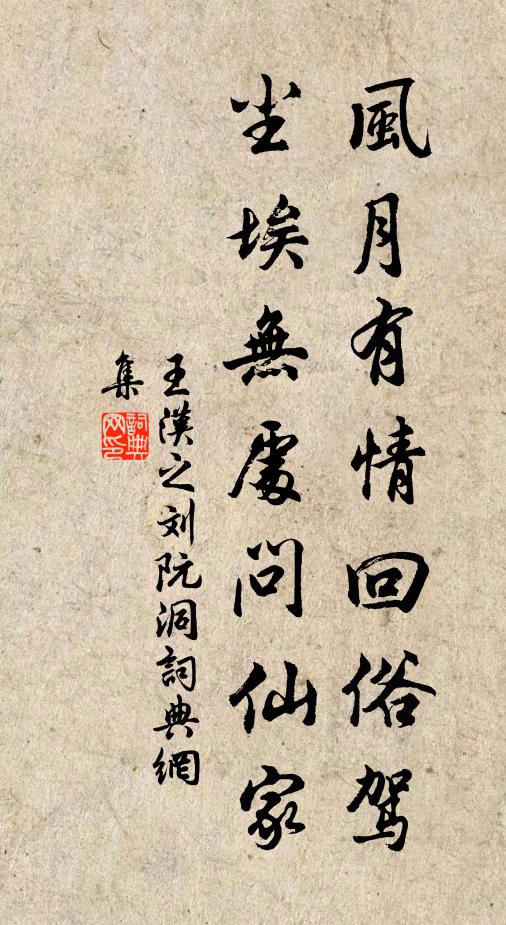 風月有情回俗驾
尘埃無處問仙家
王漢之刘阮洞詞典網
集
詞典
网印